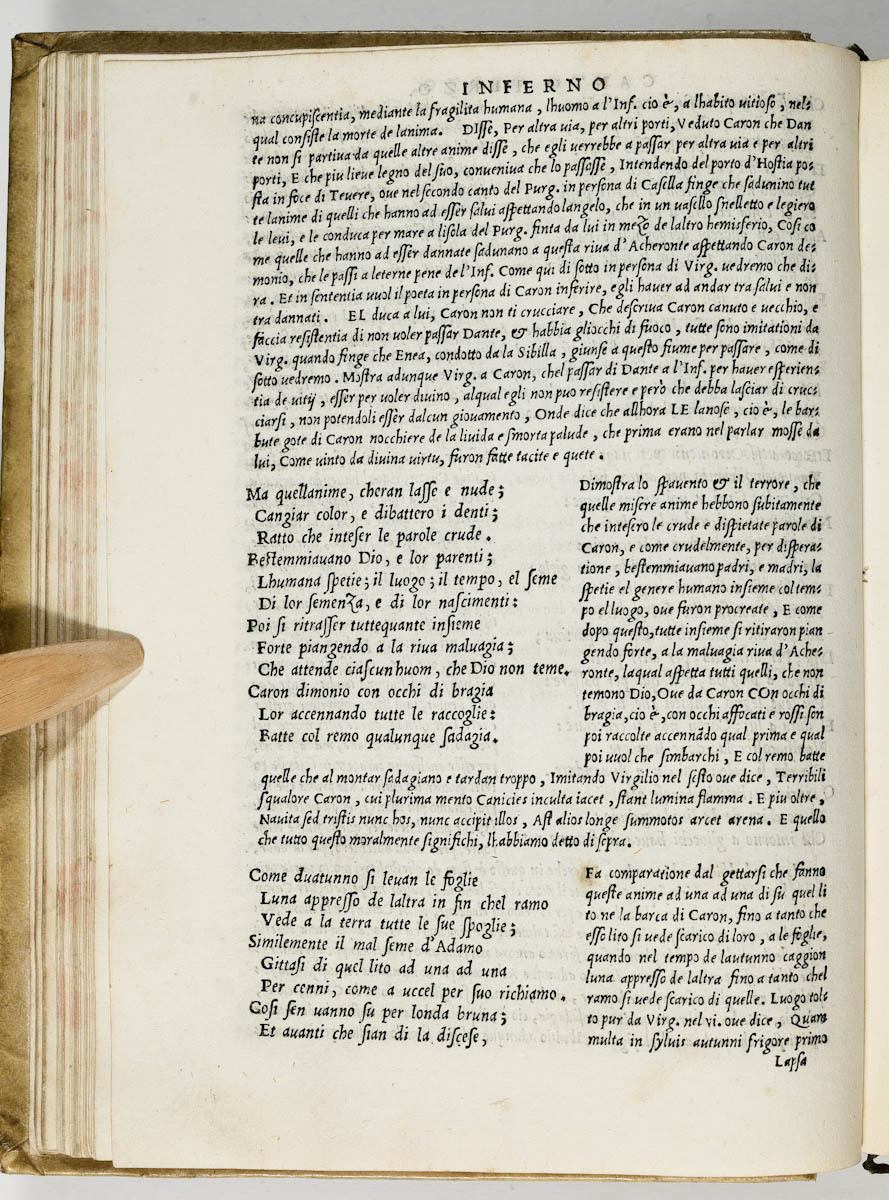 INFERNO
na concupiscentia, mediante la fragilita humana, lhuomo a l'Inf. cio è, a lhabito uitioso, nel=
qual consiste la morte de lanima. DIsse, Per altra uia, per altri porti, Veduto Caron che Dan
te non si partiua da quelle altre anime disse, che egli uerrebbe a passar per altra uia e per altri
porti, E che piu lieue legno del suo, conueniua che lo passasse, Intendendo del porto d'Hostia po=
sta in foce di Teuere, oue nel secondo canto del Purg. in persona di Casella finge che sadunino tut
te lanime di quelli che hanno ad esser salui aspettando langelo, che in un uasello snelletto e legiero
le leui, e le conduca per mare a lisola del Purg. finta da lui in mezo de laltro hemisferio, Cosi co
me quelle che hanno ad esser dannate sadunano a questa riua d'Acheronte aspettando Caron de=
monio, che le passi a leterne pene de l'Inf. Come qui di sotto in persona di Virg. uedremo che di=
ra. Et in sententia uuol il poeta in persona di Caron inferire, egli hauer ad andar tra salui e non
tra dannati. EL duca a lui, Caron non ti crucciare, Che descriua Caron canuto e uecchio, e
faccia resistentia di non uoler passar Dante, & habbia gliocchi di fuoco, tutte sono imitationi da
Virg. quando finge che Enea, condotto da la Sibilla, giunse a questo fiume per passare, come di
sotto uedremo. Mostra adunque Virg. a Caron, chel passar di Dante a l'Inf. per hauer esperien=
tia de uitij, esser per uoler diuino, alqual egli non puo resistere e però che debba lasciar di cruc=
ciarsi, non potendoli esser dalcun giouamento, Onde dice che allhora LE lanose, cio è, le bar=
bute gote di Caron nocchiere de la liuida e smorta palude, che prima erano nel parlar mosse da
lui, Come uinto da diuina uirtu, furon fatte tacite e quete.
Ma quellanime, cheran lasse e nude;
Cangiar color, e dibattero i denti;
Ratto che inteser le parole crude.
Bestemmiauano Dio, e lor parenti;
Lhumana spetie; il luogo; il tempo, el seme
Di lor semenza, e di lor nascimenti:
Poi si ritrasser tuttequante insieme
Forte piangendo a la riua maluagia;
Che attende ciascun huom, che Dio non teme.
Caron dimonio con occhi di bragia
Lor accennando tutte le raccoglie:
Batte col remo qualunque sadagia.
Dimostra lo spauento & il terrore, che
quelle misere anime hebbono subitamente
che intesero le crude e dispietate parole di
Caron, e come crudelmente, per dispera=
tione, bestemmiauano padri, e madri, la
spetie el genere humano insieme col tem=
po el luogo, oue furon procreate, E come
dopo questo, tutte insieme si ritiraron pian
gendo forte, a la maluagia riua d'Ache=
ronte, laqual aspetta tutti quelli, che non
temono Dio, Oue da Caron COn occhi di
bragia, cio è, con occhi affocati e rossi son
poi raccolte accennãdo qual prima e qual
poi uuol che simbarchi, E col remo batte
quelle che al montar sadagiano e tardan troppo, Imitando Virgilio nel sesto oue dice, Terribili
squalore Caron, cui plurima mento Canicies inculta iacet, stant lumina flamma. E piu oltre,
Nauita sed tristis nunc hos, nunc accipit illos, Ast alios longe summotos arcet arena. E quello
che tutto questo moralmente significhi, lhabbiamo detto di sopra.
Come dautunno si leuan le foglie
Luna appresso de laltra in fin chel ramo
Vede a la terra tutte le sue spoglie;
Similemente il mal seme d'Adamo
Gittasi di quel lito ad una ad una
Per cenni, come a uccel per suo richiamo.
Cosi sen uanno su per londa bruna;
Et auanti che sian di la discese,
Fa comparatione dal gettarsi che fanno
queste anime ad una ad una di su quel li
to ne la barca di Caron, fino a tanto che
esso lito si uede scarico di loro, a le foglie,
quando nel tempo de lautunno caggion
luna appresso de laltra fino a tanto chel
ramo si uede scarico di quelle. Luogo tol=
to pur da Virg. nel vi. oue dice, Quam
multa in syluis autunni frigore primo
Lapsa